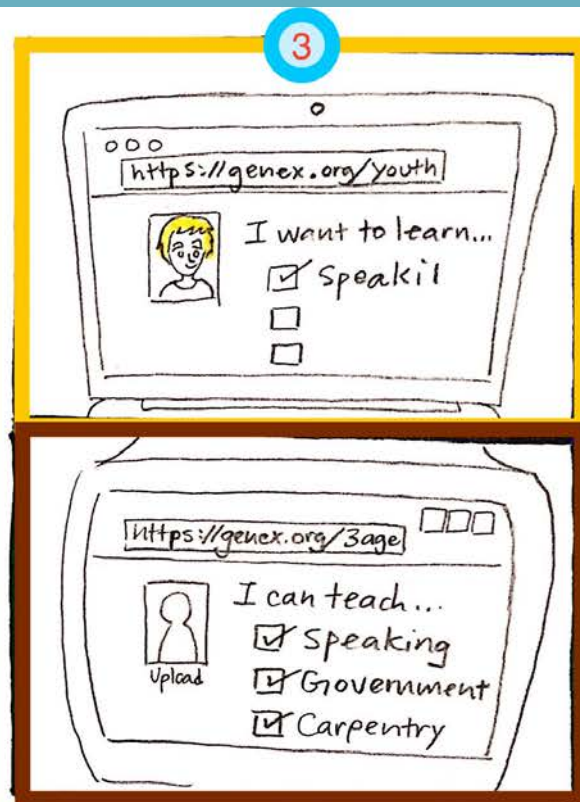 3
https://genex.org/youth
I want to learn...
Speakil
https://genex.org/3age
I can teach...
Speaking
Government
Carpentry
Upload